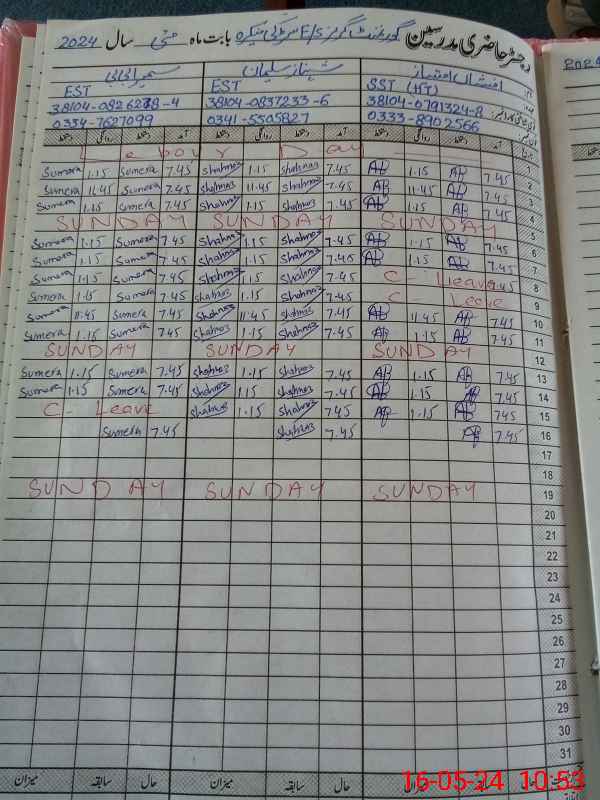 رجسٹر حاضری مدرسین گورنمنٹ گرلز E/S سرکی میکرہ بابت ماہ مئی سال 2024
افشاں امتیاز شہناز سلیمان سمیرا بی بی
SST (HT) EST EST
38104-0791324-8 38104-0837233-6 38104-0826278-4
0333-8902566 0341-5505827 0334-7627099
آمد دستخط روانگی دستخط آمد دستخط روانگی دستخط آمد دستخط روانگی دستخط
Lebour Day 1
Sumera 1.15 Sumera 7.45 Shahnaz 1.15 Shahnaz 7.45 1.15 7.45 2
Sumera 11.45 Sumera 7.45 Shahnaz 11.45 Shahnaz 7.45 11.45 7.45 3
Sumera 1.15 Sumera 7.45 Shahnaz 1.15 Shahnaz 7.45 1.15 7.45 4
SUNDAY SUNDAY SUNDAY 5
Sumera 1.15 Sumera 7.45 Shahnaz 1.15 Shahnaz 7.45 1.15 7.45 6
Sumera 1.15 Sumera 7.45 Shahnaz 1.15 Shahnaz 7.45 1.15 7.45 7
Sumera 1.15 Sumera 7.45 Shahnaz 1.15 Shahnaz 7.45 C- Leave 7.45 8
Sumera 1.15 Sumera 7.45 Shahnaz 1.15 Shahnaz 7.45 C- Leave 9
Sumera 11.45 Sumera 7.45 Shahnaz 11.45 Shahnaz 7.45 11.45 7.45 10
Sumera 1.15 Sumera 7.45 Shahnaz 1.15 Shahnaz 7.45 1.15 7.45 11
SUNDAY SUNDAY SUNDAY 12
Sumera 1.15 Sumera 7.45 Shahnaz 1.15 Shahnaz 7.45 1.15 7.45 13
Sumera 1.15 Sumera 7.45 Shahnaz 1.15 Shahnaz 7.45 1.15 7.45 14
C- Leave Shahnaz 1.15 Shahnaz 7.45 1.15 7.45 15
Sumera 7.45 Shahnaz 7.45 7.45 16
17
18
SUNDAY SUNDAY SUNDAY 19
20
21
22
23
24
25
26
27
28
29
30
31
حال سابقہ میزان حال سابقہ میزان
16-05-24 10:53